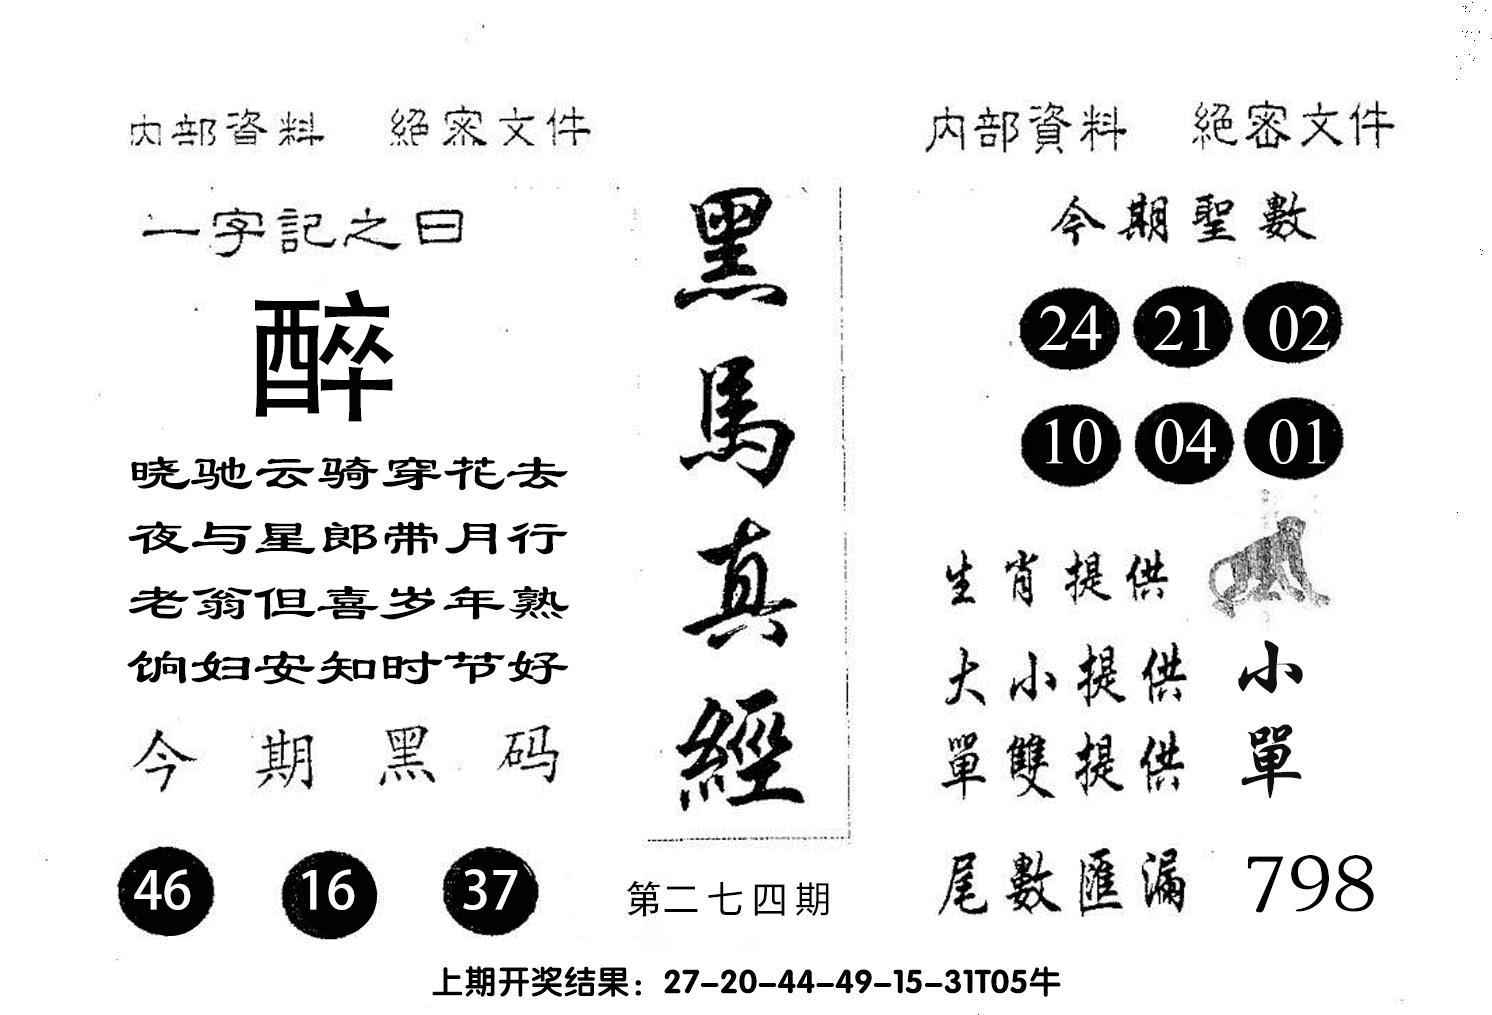 内部資料 絕密文件
一字記之曰
醉
晓驰云骑穿花去
夜与星郎带月行
老翁但喜岁年熟
饷妇安知时节好
今期黑码
46 16 37
黑馬真經
第二七四期
内部資料 絕密文件
今期聖數
24 21 02
10 04 01
生肖提供
大小提供 小
單雙提供 單
尾數匯漏 798
上期开奖结果：27-20-44-49-15-31T05牛